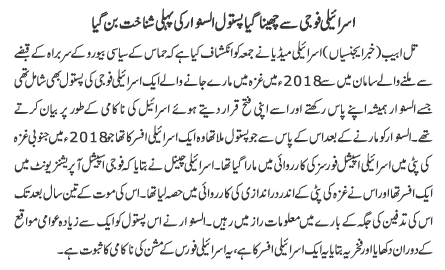 اسرائیلی فوجی سے چھینا گیا پستول السنوار کی پہلی شناخت بن گیا
تل ابیب (خبر ایجنسیاں) اسرائیلی میڈیا نے جمعہ کو انکشاف کیا ہے کہ حماس کے سیاسی بیورو کے سربراہ کے قبضے
سے ملنے والے سامان میں سے 2018ء میں غزہ میں مارے جانے والے ایک اسرائیلی فوجی کی پستول بھی شامل تھی
جسے السنوار ہمیشہ اپنے پاس رکھتے اور اسے اپنی فتح قرار دیتے ہوئے اسرائیل کی ناکامی کے طور پر بیان کرتے
تھے۔ السنوار کو مارنے کے بعد اس کے پاس سے جو پستول ملا تھا وہ ایک اسرائیلی افسر کا تھا جو 2018ء میں جنوبی غزہ
کی پٹی میں اسرائیلی اسپیشل فورسز کی کارروائی میں مارا گیا تھا۔ اسرائیلی چینل نے بتایا کہ فوجی اسپیشل آپریشنز یونٹ میں
ایک افسر تھا اور اس نے غزہ کی پٹی کے اندر دراندازی کی کارروائی میں حصہ لیا تھا۔ اس کی موت کے تین سال بعد تک
اس کی تدفین کی جگہ کے بارے میں معلومات راز میں رہیں۔ السنوار نے اس پستول کو ایک سے زیادہ عوامی مواقع
کے دوران دکھایا اور فخریہ بتایا یہ ایک اسرائیلی افسر کا ہے، یہ اسرائیلی فورس کے مشن کی ناکامی کا ثبوت ہے۔